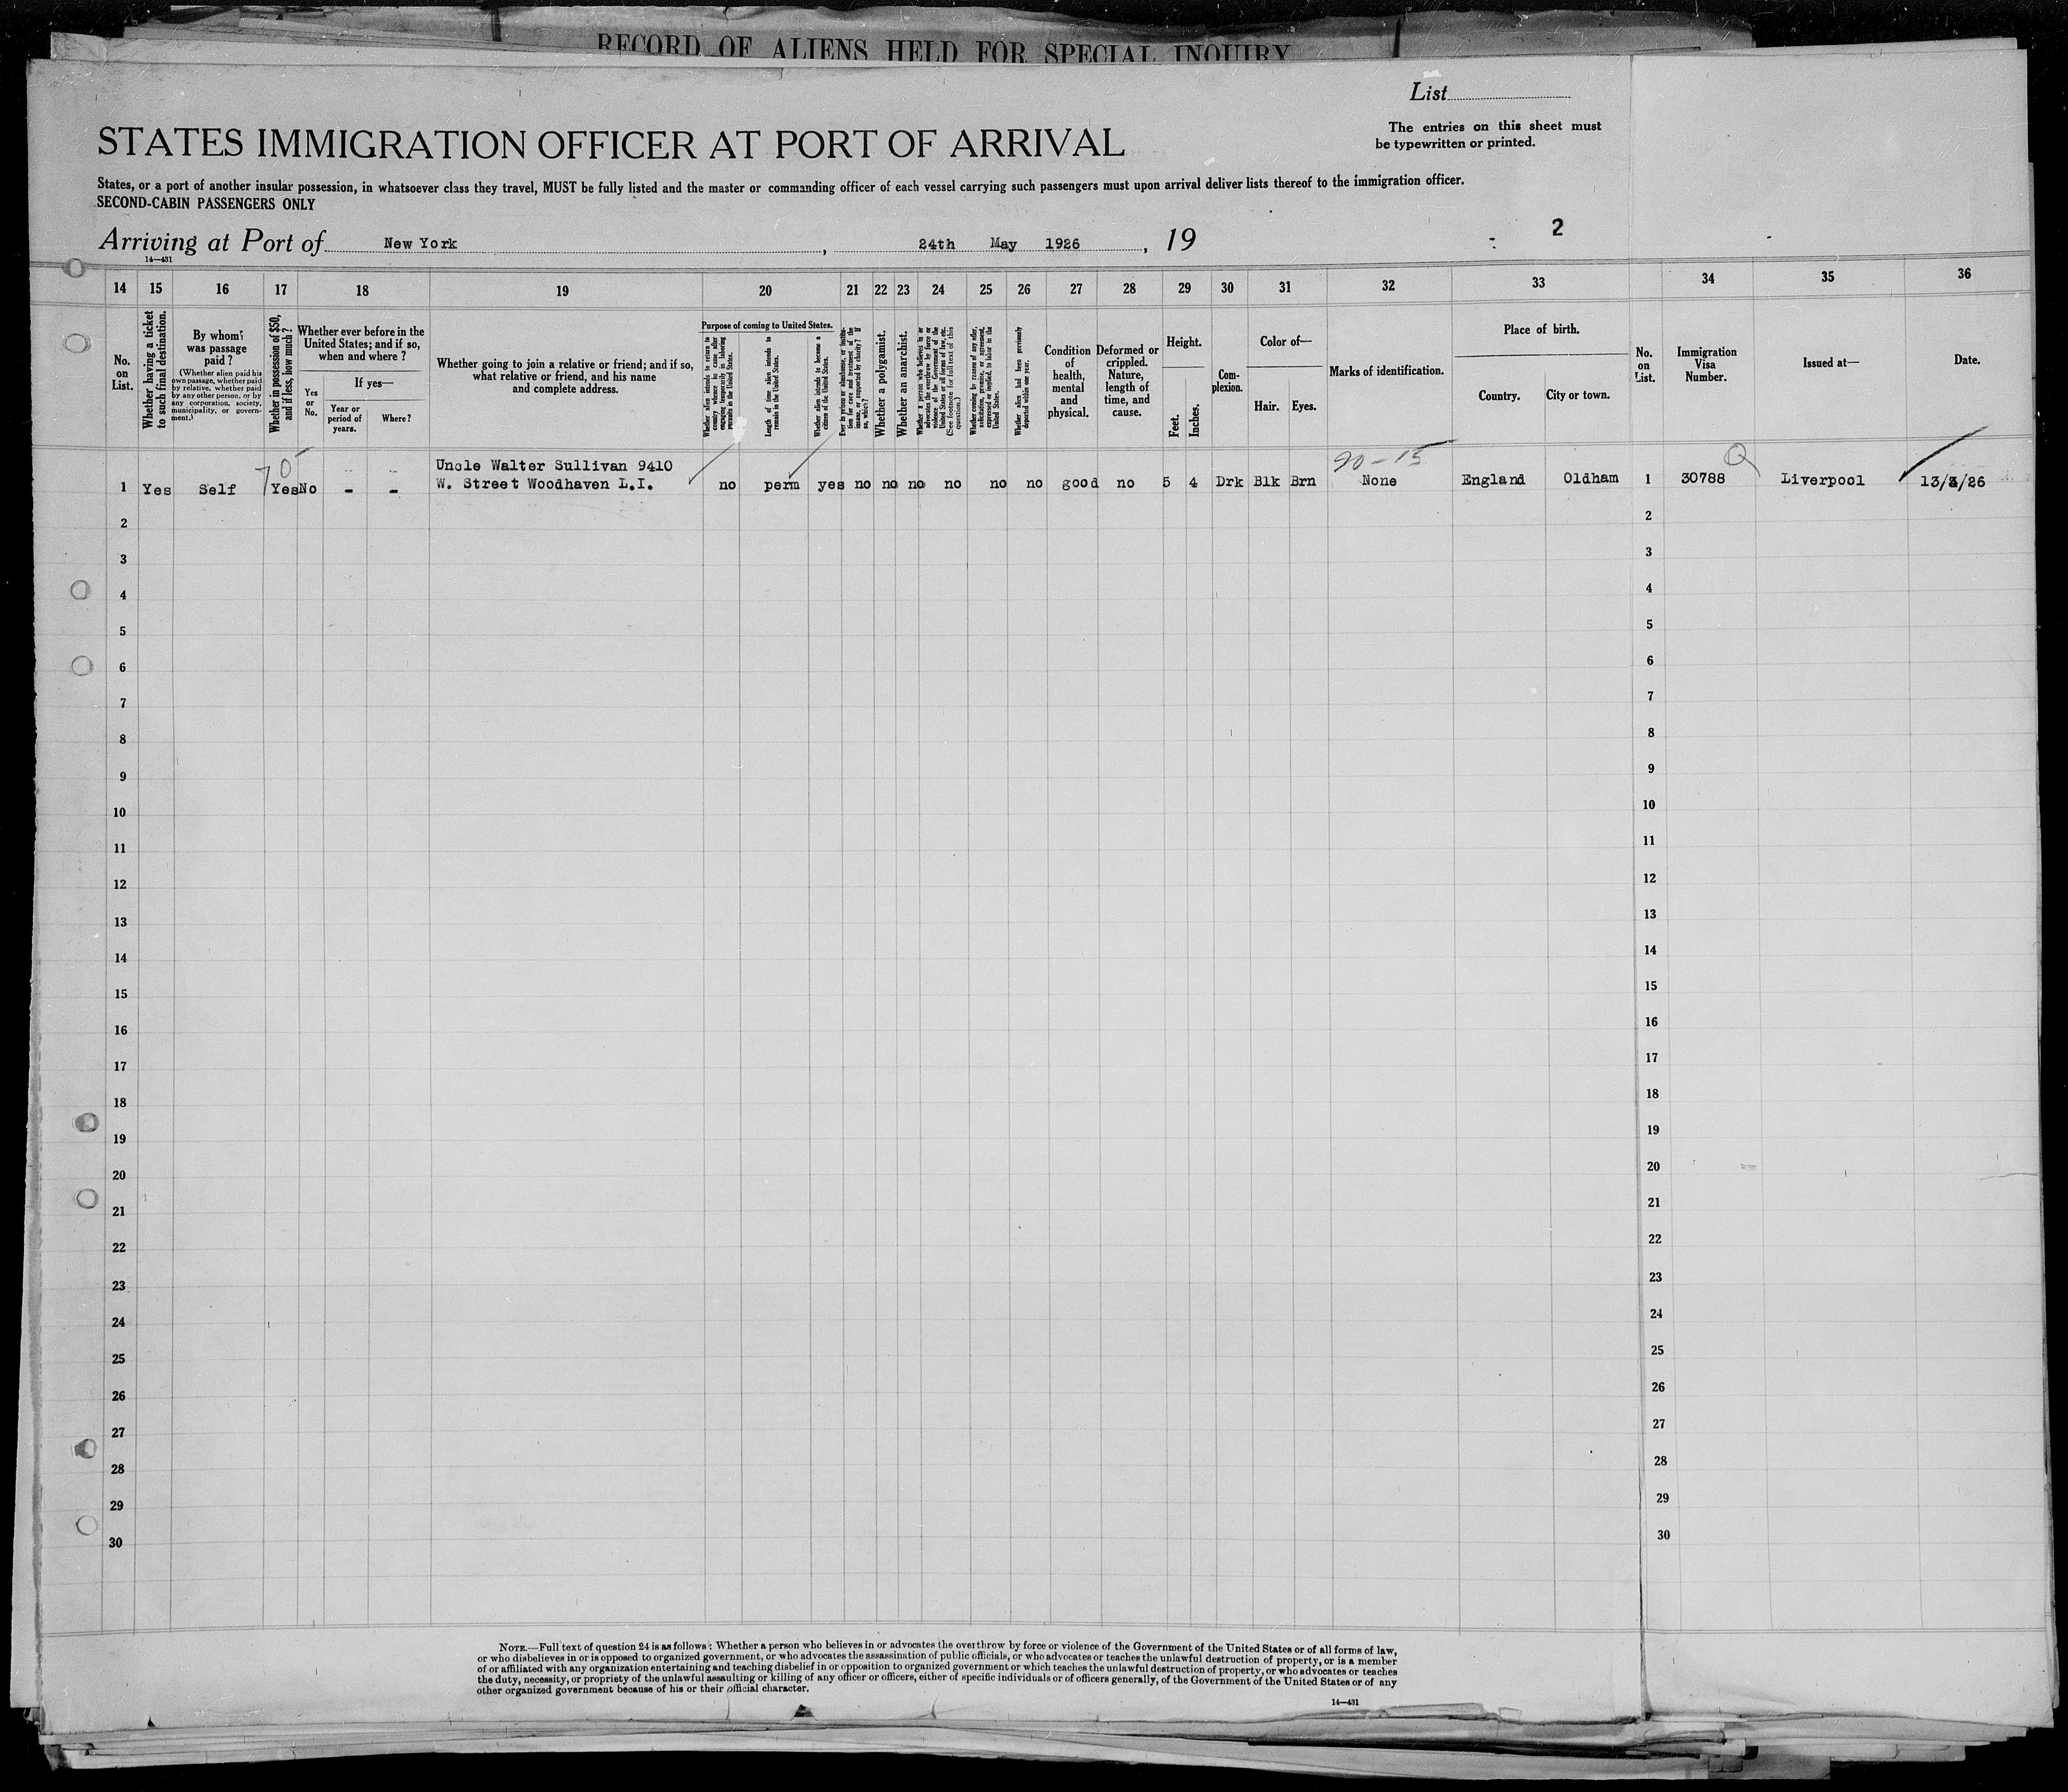 RECORD OF ALIENS HELD FOR SPECIAL INQUIRY
List
The entries on this sheet must
be typewritten or printed.
STATES IMMIGRATION OFFICER AT PORT OF ARRIVAL
States, or a port of another insular possession, in whatsoever class they travel, MUST be fully listed and the master or commanding officer of each vessel carrying such passengers must upon arrival deliver lists thereof to the immigration officer.
SECOND-CABIN PASSENGERS ONLY
Arriving at Port of New York, 24th May 1926, 19
2
14—431
14 15 16 17 18 19 20 21 22 23 24 25 26 27 28 29 30 31 32 33 34 35 36
No. on List.
Whether having a ticket to such final destination.
By whom was passage paid?
(Whether alien paid his own passage, whether paid by relative, whether paid by any other person, or by any corporation, society, municipality, or government.)
Whether in possession of $50, and if less, how much?
Whether ever before in the United States; and if so, when and where?
Yes or No.
If yes—
Year or period of years.
Where?
Whether going to join a relative or friend; and if so, what relative or friend, and his name and complete address.
Purpose of coming to United States.
Whether alien intends to return to country whence he came after engaging temporarily in laboring pursuits in the United States.
Length of time alien intends to remain in the United States.
Whether alien intends to become a citizen of the United States.
Ever in prison or almshouse, or institution for care and treatment of the insane, or supported by charity? If so, which?
Whether a polygamist.
Whether an anarchist.
Whether a person who believes in or advocates the overthrow by force or violence of the Government of the United States or all forms of law, etc. (See footnote for full text of this question.)
Whether coming by reason of any offer, solicitation, promise, or agreement, expressed or implied, to labor in the United States.
Whether alien had been previously deported within one year.
Condition of health, mental and physical.
Deformed or crippled. Nature, length of time, and cause.
Height.
Feet.
Inches.
Complexion.
Color of—
Hair.
Eyes.
Marks of identification.
Place of birth.
Country.
City or town.
No. on List.
Immigration Visa Number.
Issued at—
Date.
70
20-15
Q
Uncle Walter Sullivan 9410
1 Yes Self Yes No - - W. Street Woodhaven L.I. no perm yes no no no no no no good no 5 4 Drk Blk Brn None England Oldham 1 30788 Liverpool 13/ /26
2 2
3 3
4 4
5 5
6 6
7 7
8 8
9 9
10 10
11 11
12 12
13 13
14 14
15 15
16 16
17 17
18 18
19 19
20 20
21 21
22 22
23 23
24 24
25 25
26 26
27 27
28 28
29 29
30 30
NOTE.—Full text of question 24 is as follows: Whether a person who believes in or advocates the overthrow by force or violence of the Government of the United States or of all forms of law,
or who disbelieves in or is opposed to organized government, or who advocates the assassination of public officials, or who advocates or teaches the unlawful destruction of property, or is a member
of or affiliated with any organization entertaining and teaching disbelief in or opposition to organized government or which teaches the unlawful destruction of property, or who advocates or teaches
the duty, necessity, or propriety of the unlawful assaulting or killing of any officer or officers, either of specific individuals or of officers generally, of the Government of the United States or of any
other organized government because of his or their official character.
14—431